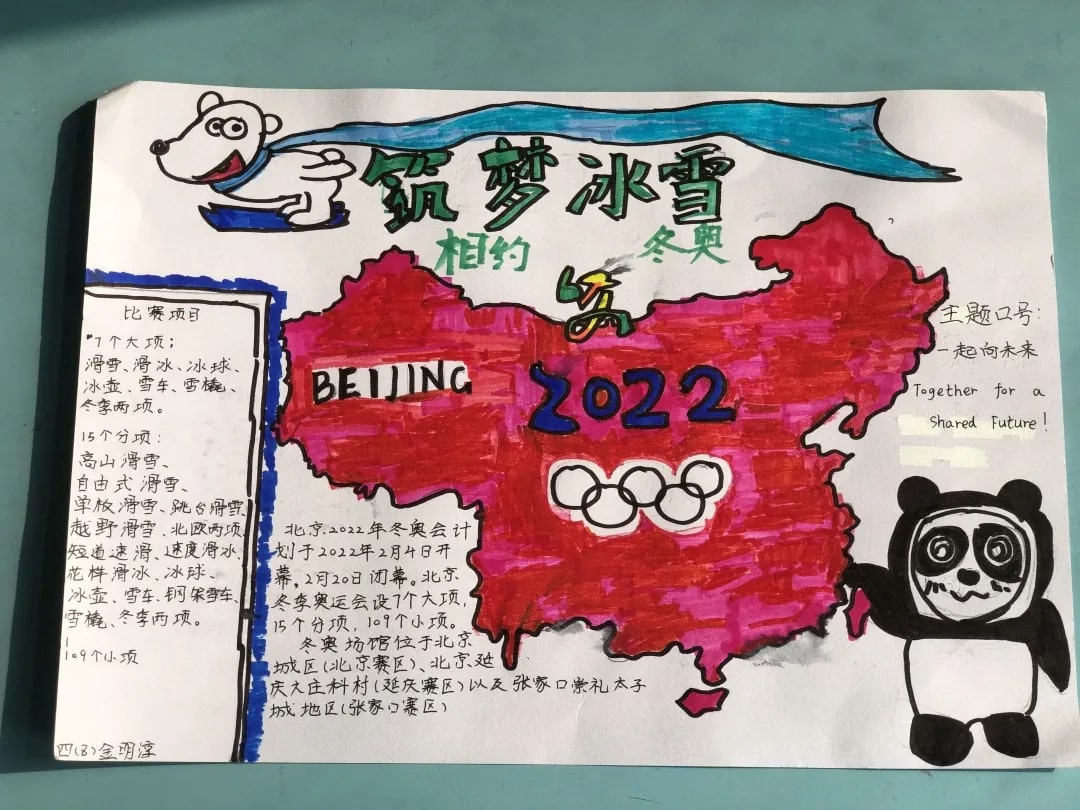 筑梦冰雪
相约 冬奥
比赛项目
*7个大项:
滑雪、滑冰、冰球、
冰壶、雪车、雪橇、
冬季两项。
15个分项:
高山滑雪、
自由式滑雪、
单板滑雪、跳台滑雪
越野滑雪、北欧两项、
短道速滑、速度滑冰、
花样滑冰、冰球、
冰壶、雪车、钢架雪车、
雪橇、冬季两项。
109个小项
四(8)金明淳
BEIJING
2022
北京2022年冬奥会计
划于2022年2月4日开
幕,2月20日闭幕。北京
冬季奥运会设7个大项,
15个分项,109个小项。
冬奥场馆位于北京
城区(北京赛区)、北京延
庆大庄科村(延庆赛区)以及张家口崇礼太子
城地区(张家口赛区)
主题口号:
一起向未来
Together for a
Shared Future!